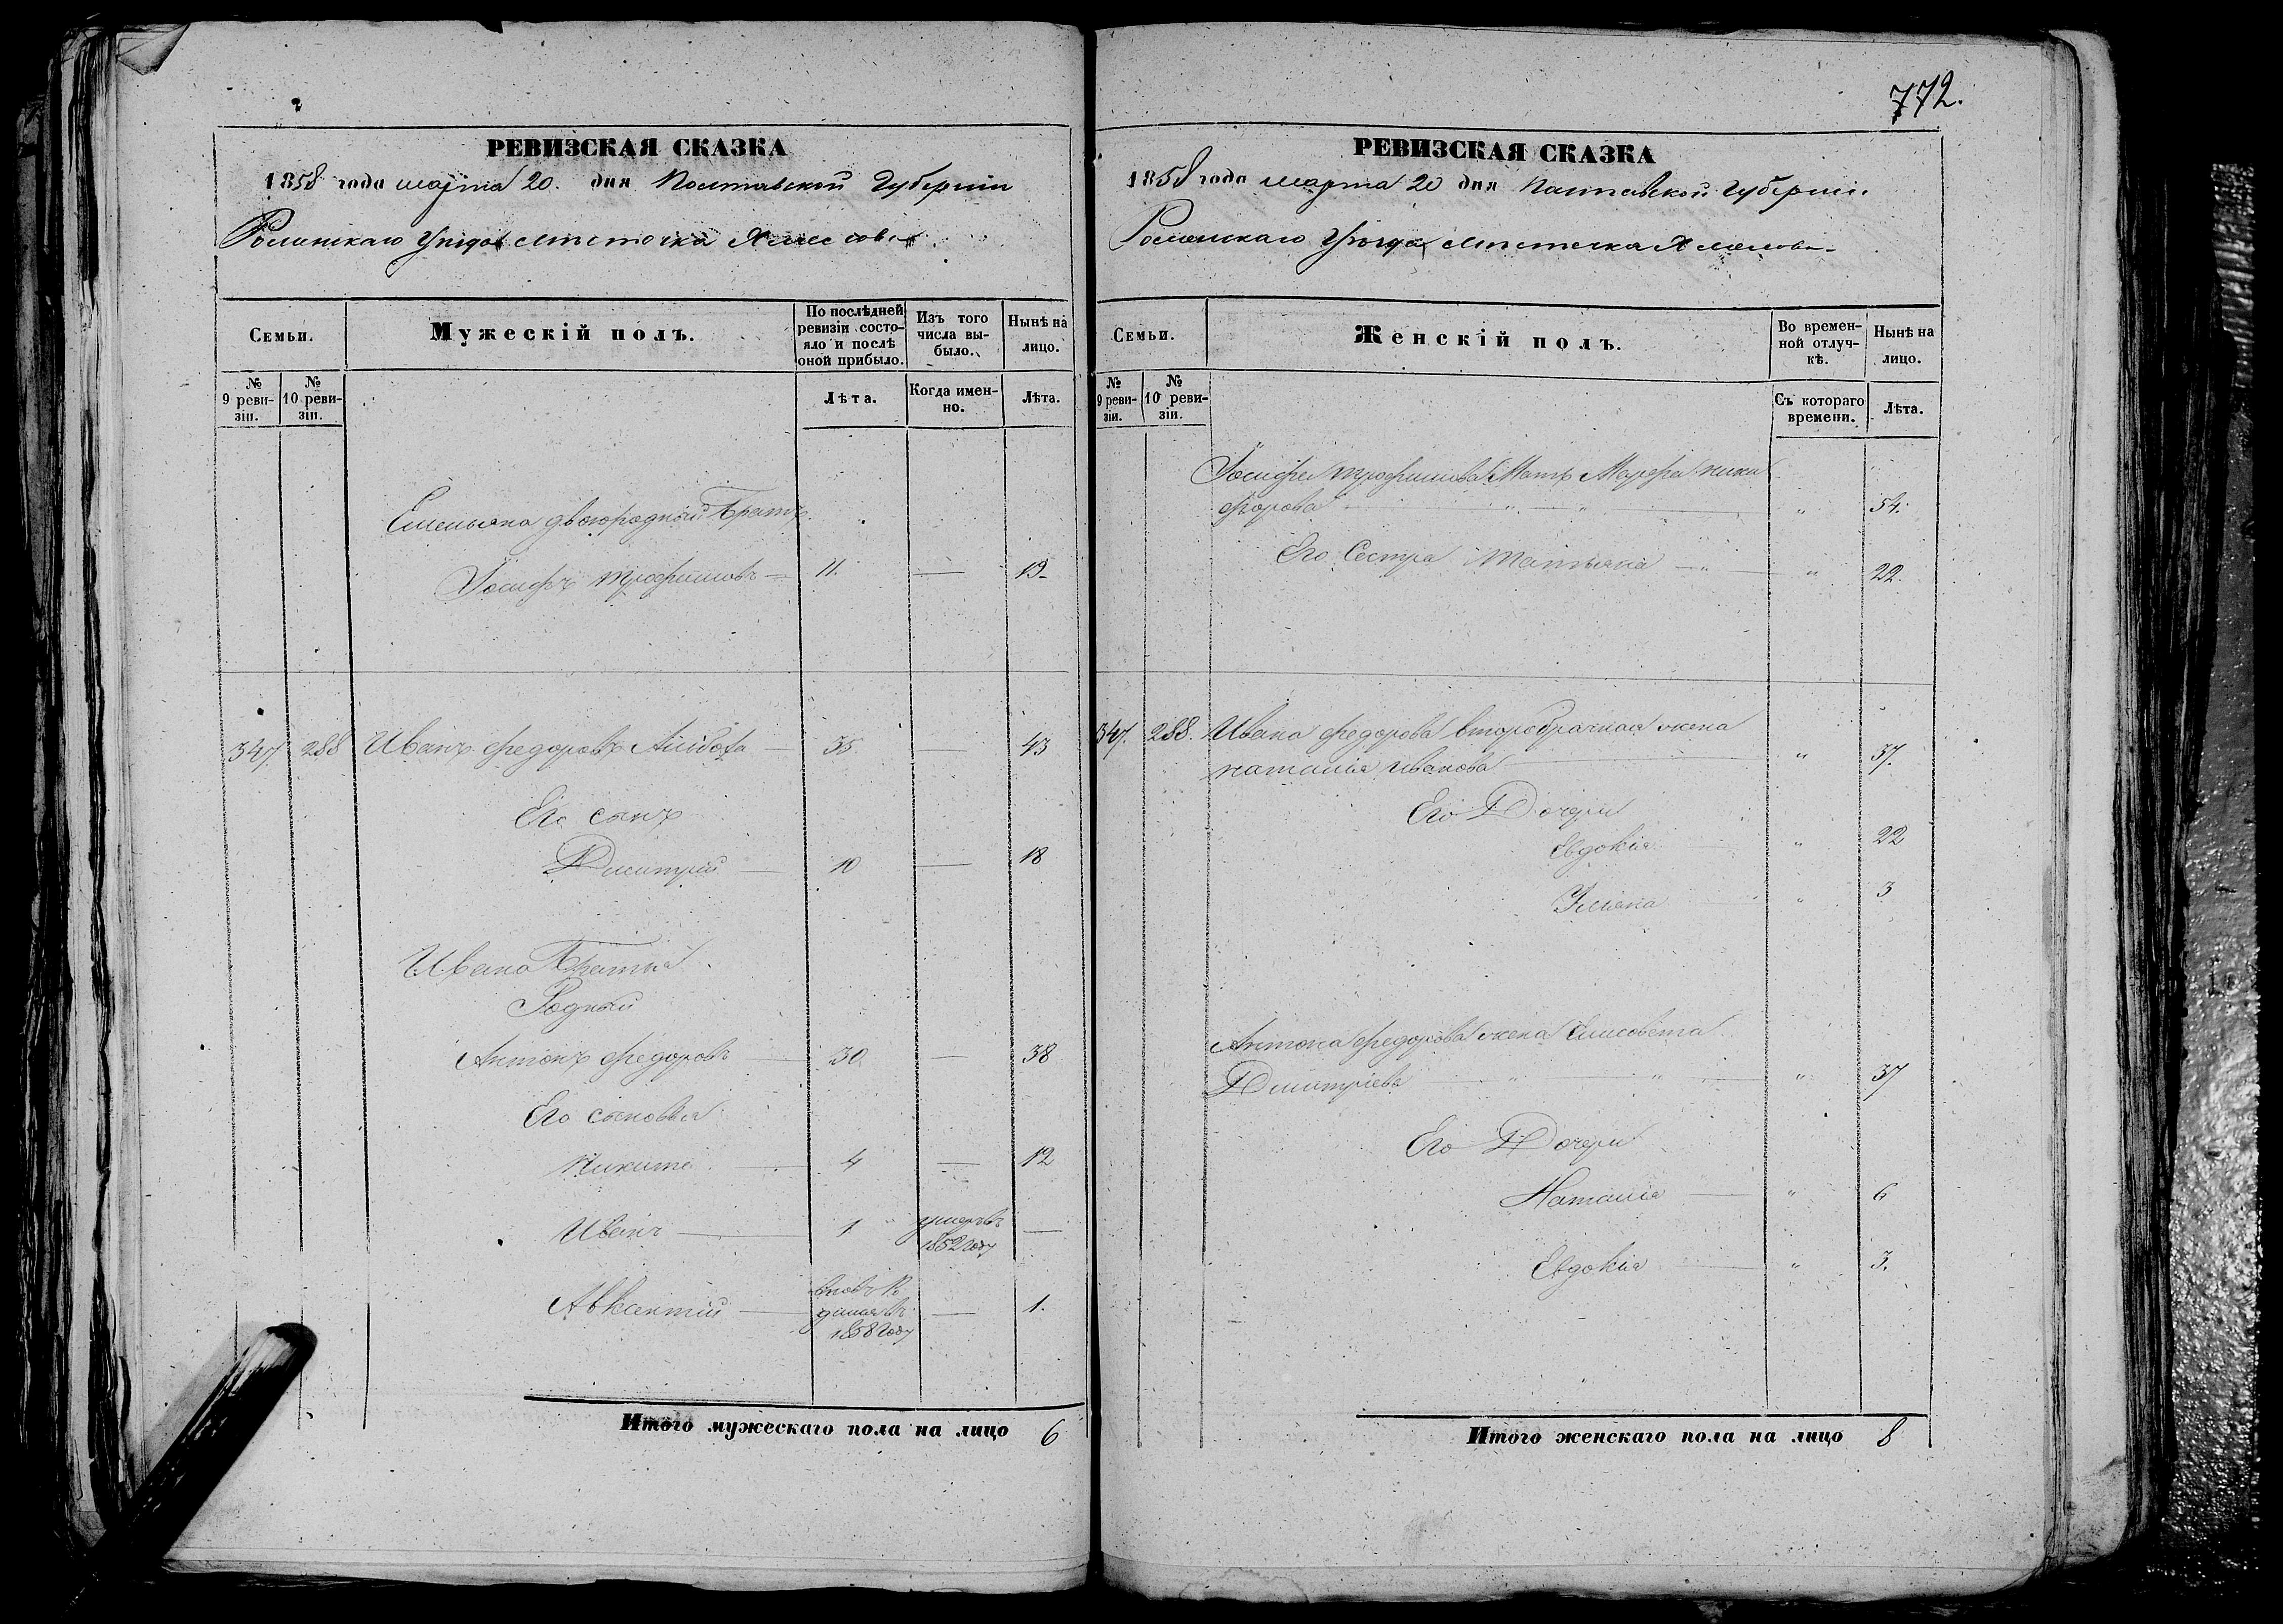 772.
РЕВИЗСКАЯ СКАЗКА
1858 года марта 20. дня Полтавской Губерніи
Роменскаго Уѣзда мѣстечка
Семьи.
Мужескій полъ.
По послѣдней ревизіи состояло и послѣ оной прибыло.
Изъ того числа выбыло.
Нынѣ на лицо.
№ 9 ревизіи.
№ 10 ревизіи.
Лѣта.
Когда именно.
Лѣта.
Емельяна двоюродный Братъ
Іосифъ Трофимовъ — 11. — 19
347. 288 Иванъ Федоровъ — 35 — 43
Его сынъ
Дмитрій — 10 — 18
Ивана Братья
Родный
Антонъ Федоровъ — 30 — 38
Его сыновья
Никита — 4 — 12
Иванъ — 1 умеръ въ 1852 году —
Авксентій — 1858 году — 1.
Итого мужескаго пола на лицо 6
РЕВИЗСКАЯ СКАЗКА
1858 года марта 20 дня Полтавской Губерніи
Роменскаго Уѣзда мѣстечка
Семьи.
Женскій полъ.
Во временной отлучкѣ.
Нынѣ на лицо.
№ 9 ревизіи.
№ 10 ревизіи.
Съ котораго времени.
Лѣта.
Іосифа Трофимова Мать Марфа Ники
форова — " — " — " 54.
Его Сестра Татьяна — " — " 22.
347. 288. Ивана Федорова второбрачная жена
Наталья Иванова — " 37.
Его Дочери
Евдокія " 22
Ульяна " 3
Антона Федорова жена Елисовета
Дмитріева — " — " — " 37
Его Дочери
Наталія — " 6
Евдокія — " 3.
Итого женскаго пола на лицо 8